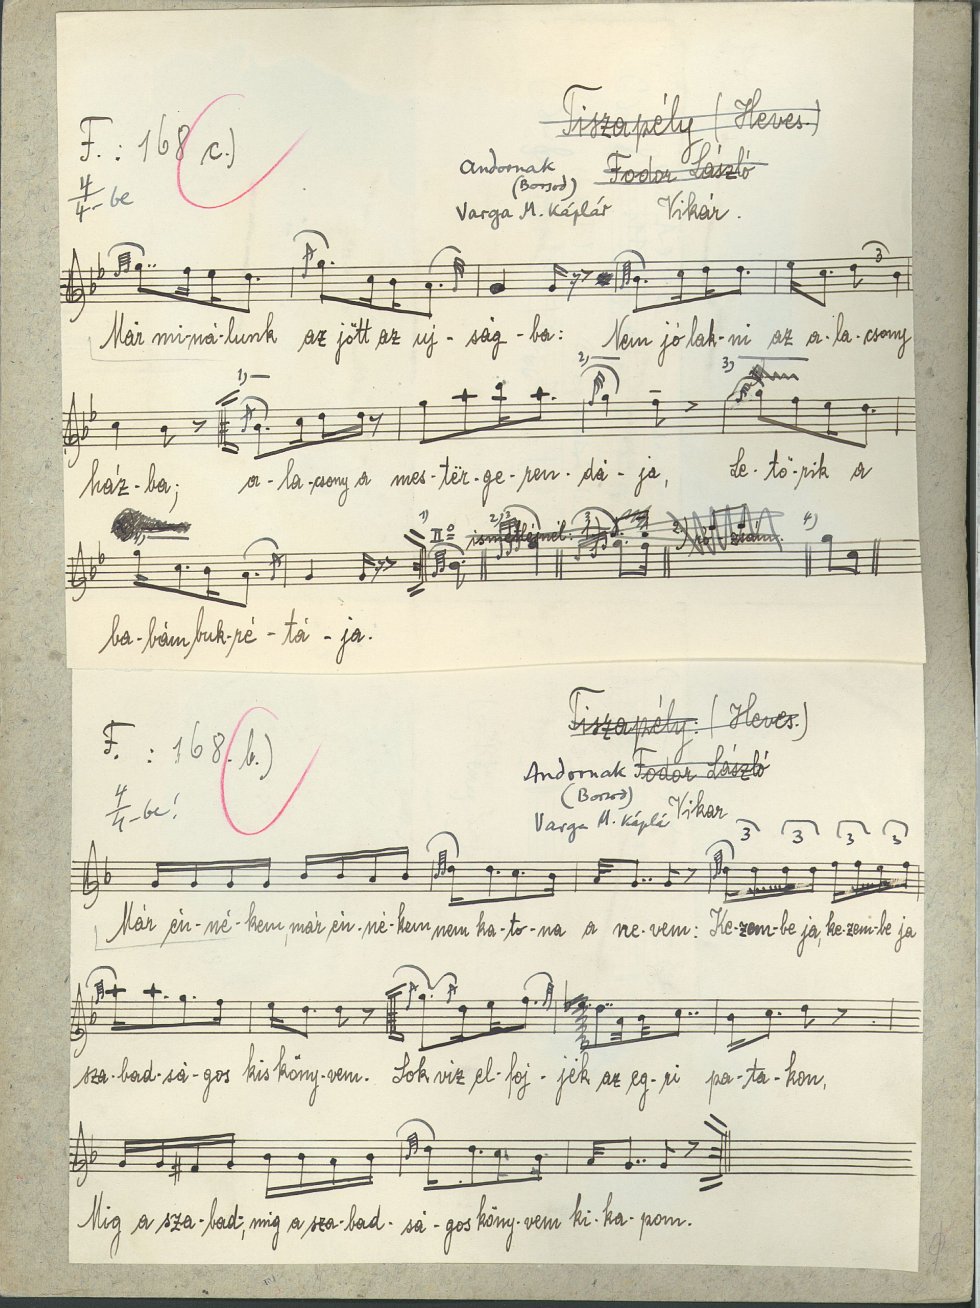 F. : 168 c.)
Tiszapély (Heves.)
4/4-be
Andornak
Fodor László
(Borsod)
Varga M. Káplár
Vikár.
3
Már mi-ná-lunk az jött az uj - ság - ba: Nem jó lak-ni az a-la-csony
1) 2) 3)
ház-ba; a-la-csony a mes-tër-ge-ren-dá-ja, Le-tö-rik a
1) II 2) 3) 4)
ba-bám buk-ré-tá-ja.
F. : 168. b.)
Tiszapély. (Heves.)
Andornak Fodor László
4/4-be!
(Borsod)
Varga M. Káplá Vikar
3 3 3 3
Már én-né-kem, már én-né-kem nem ka-to-na a ne-vem: Ke-zem-be ja, ke-zem-be ja
sza-bad-sá-gos kis köny-vem. Sok viz el-foj-jék az eg-ri pa-ta-kon,
Mig a sza-bad-, mig a sza-bad-sá-gos köny-vem ki-ka-pom.